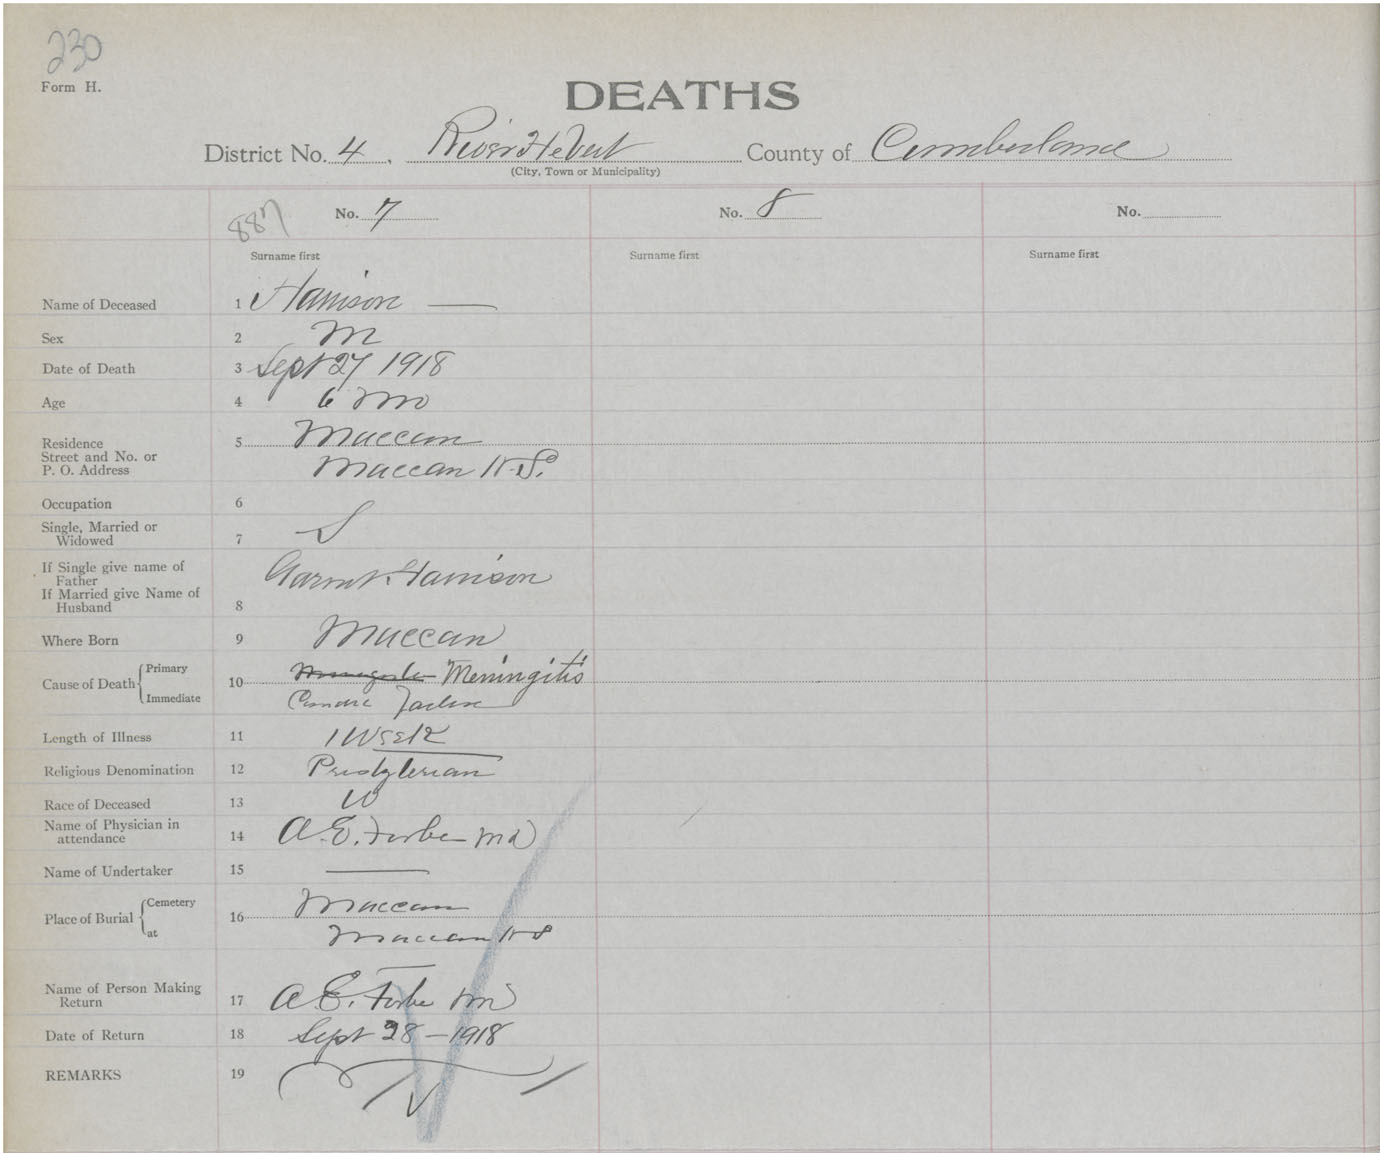 230
Form H.
DEATHS
District No. 4, River Hebert County of Cumberland
(City, Town or Municipality)
887 No. 7 No. 8 No.
Surname first Surname first Surname first
Name of Deceased 1 Harrison —
Sex 2 M
Date of Death 3 Sept 27 1918
Age 4 6 mo
Residence 5 Maccan
Street and No. or
P. O. Address Maccan N.S.
Occupation 6
Single, Married or
Widowed 7 S
If Single give name of
Father Harrison
If Married give Name of
Husband 8
Where Born 9 Maccan
Cause of Death { Primary Meningitis
10
Immediate Cardiac Failure
Length of Illness 11 1 Week
Religious Denomination 12 Presbyterian
Race of Deceased 13 W
Name of Physician in
attendance 14 A. E. Forbes MD
Name of Undertaker 15 —
Place of Burial { Cemetery Maccan
16
at Maccan N S
Name of Person Making
Return 17 A E. Forbes
Date of Return 18 Sept 28 - 1918
REMARKS 19